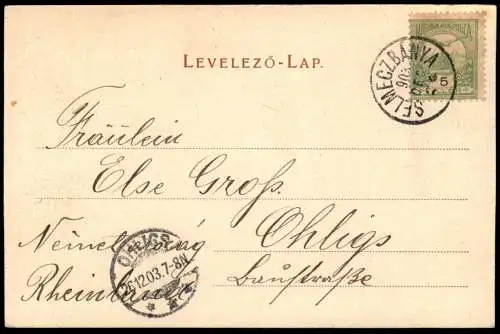 LEVELEZŐ-LAP.
SELMECZBÁNYA
903
5
Fräulein
Else Groß.
Németország Ohligs
Rheinland Baustraße
OHLIGS
26.12.03.7-8N.